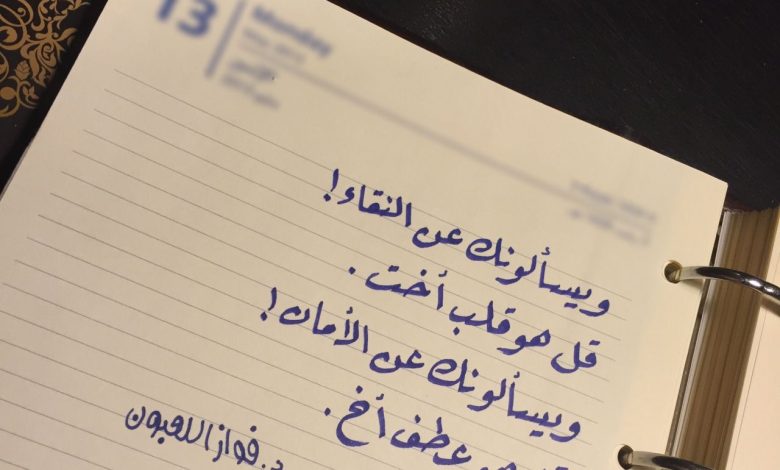 13
Monday
ويسألونك عن النقاء!
قل هو قلب أخت.
ويسألونك عن الأمان!
عطف أخ.
د. فواز اللعبون